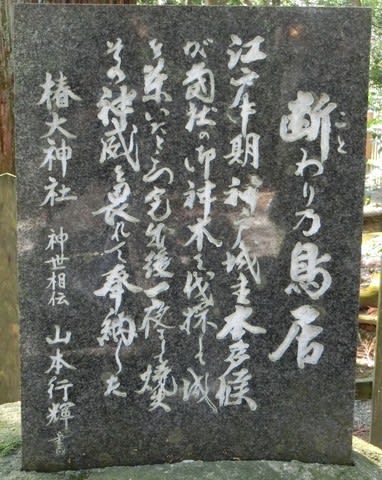 断わり乃鳥居
こと
江戸中期神戸城主本多候
が當社の御神木を伐採し城
を築いたところ完成後一夜にて焼失
その神威を畏れて奉納した
椿大神社 神世相伝 山本行輝 書